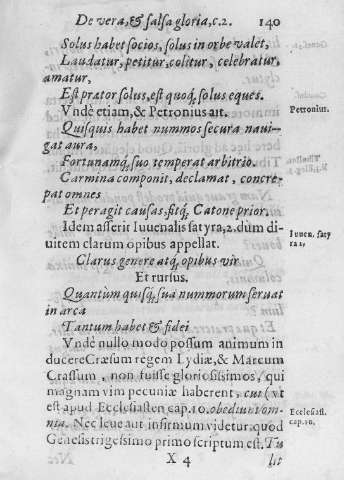 De vera, & falsa gloria, c.2. 140
Solus habet socios, solus in orbe valet,
Laudatur, petitur, colitur, celebratur,
amatur,
Est prætor solus, est quoq; solus eques.
Vndè etiam, & Petronius ait. Petronius.
Quisquis habet nummos secura naui-
gat aura,
Fortunamq; suo temperat arbitrio.
Carmina componit, declamat, concre-
pat omnes
Et peragit causas, fitq; Catone prior.
Idem asserit Iuuenalis satyra, 2. dum di- Iuuen. saty
uitem clarum opibus appellat. ra 2,
Clarus genere atq; opibus vir
Et rursus.
Quantùm quisq; sua nummorum seruat
in arca
Tantum habet & fidei
Vndè nullo modo possum animum in
ducere Cræsum regem Lydiæ, & Marcum
Crassum, non fuisse gloriosissimos, qui
magnam vim pecuniæ haberent, cui (vt
est apud Ecclesiasten cap. 10. obediunt om- Ecclesiast.
nia. Nec leue aut infirmum videtur, quod cap. 10.
Genesis trigesimo primo scriptum est. Tu
X 4 lit